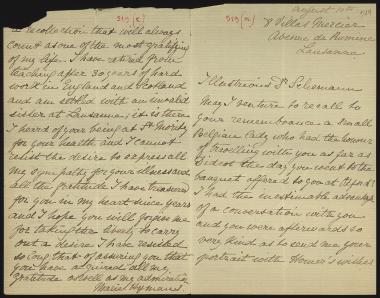 519 (a)
August 10th
8 Villas Mercier
Avenue de Rumine
Lausanne
Illustrious Dr Schliemann
May I venture to recall to
your remembrance a small
Belgian Lady who had the honour
of travelling with you as far as
Didcot the day you went to the
banquet offered to you at
I had the inestimable advantage
of a conversation with you
and you were afterwards so
very kind as to send me your
portrait with Homer's wishes
519 (c)
a recollection that will always
count as one of the most gratifying
of my life. I have retired from
teaching after 30 years of hard
work in England and Scotland
and am settled with an invalid
sister at Lausanne; it is there
I heard of your being at St Moritz
for your health and I cannot
resist the desire to express all
my sympathy for your illness and
all the gratitude I have treasured
for you in my heart since years
and I hope you will forgive me
for taking the liberty to carry
out a desire I have resisted
so long that of assuring you that
you have acquired all my
gratitude as well as my admiration
Marie Hymans.